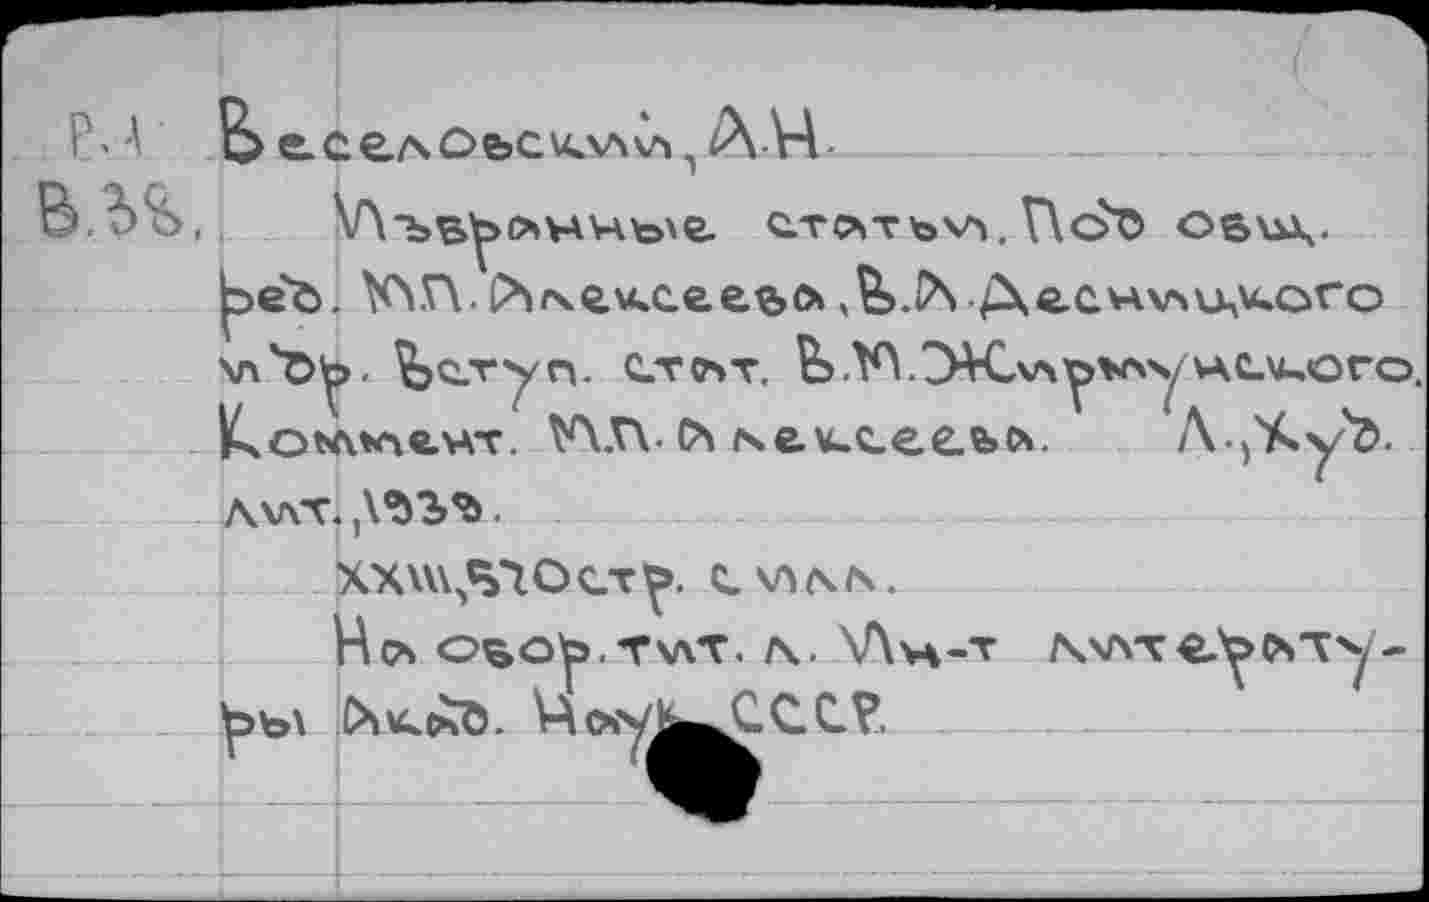 Р.1 Веселовский, А.Н.
В.38. Избранные статьи. Под общ.
ред. М.П. Алексеева, В.А. Десницкого
и др. Вступ. стат. В.М. Жирмунского.
Коммент. М.П. Алексеева. Л., Худ.
лит., 1939.
XXIII, 570стр. с илл.
На обор. тит. л. Ин-т литерату-
ры Акад. Наук СССР.